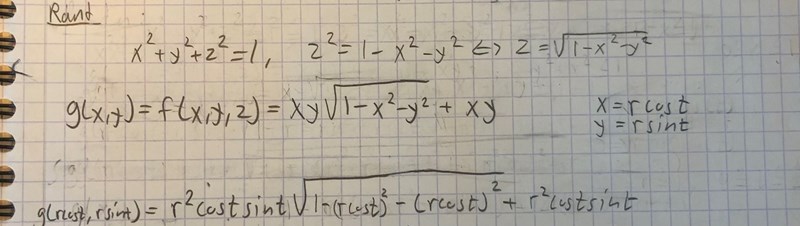 Rand
x²+y²+z²=1, z²=1-x²-y² ⇔ z=√(1-x²-y²)
g(x,y)=f(x,y,z)=xy√(1-x²-y²) + xy
x=rcost
y=rsint
g(rcost,rsint)=r²costsint√(1-(rcost)²-(rcost)²)+r²costsint